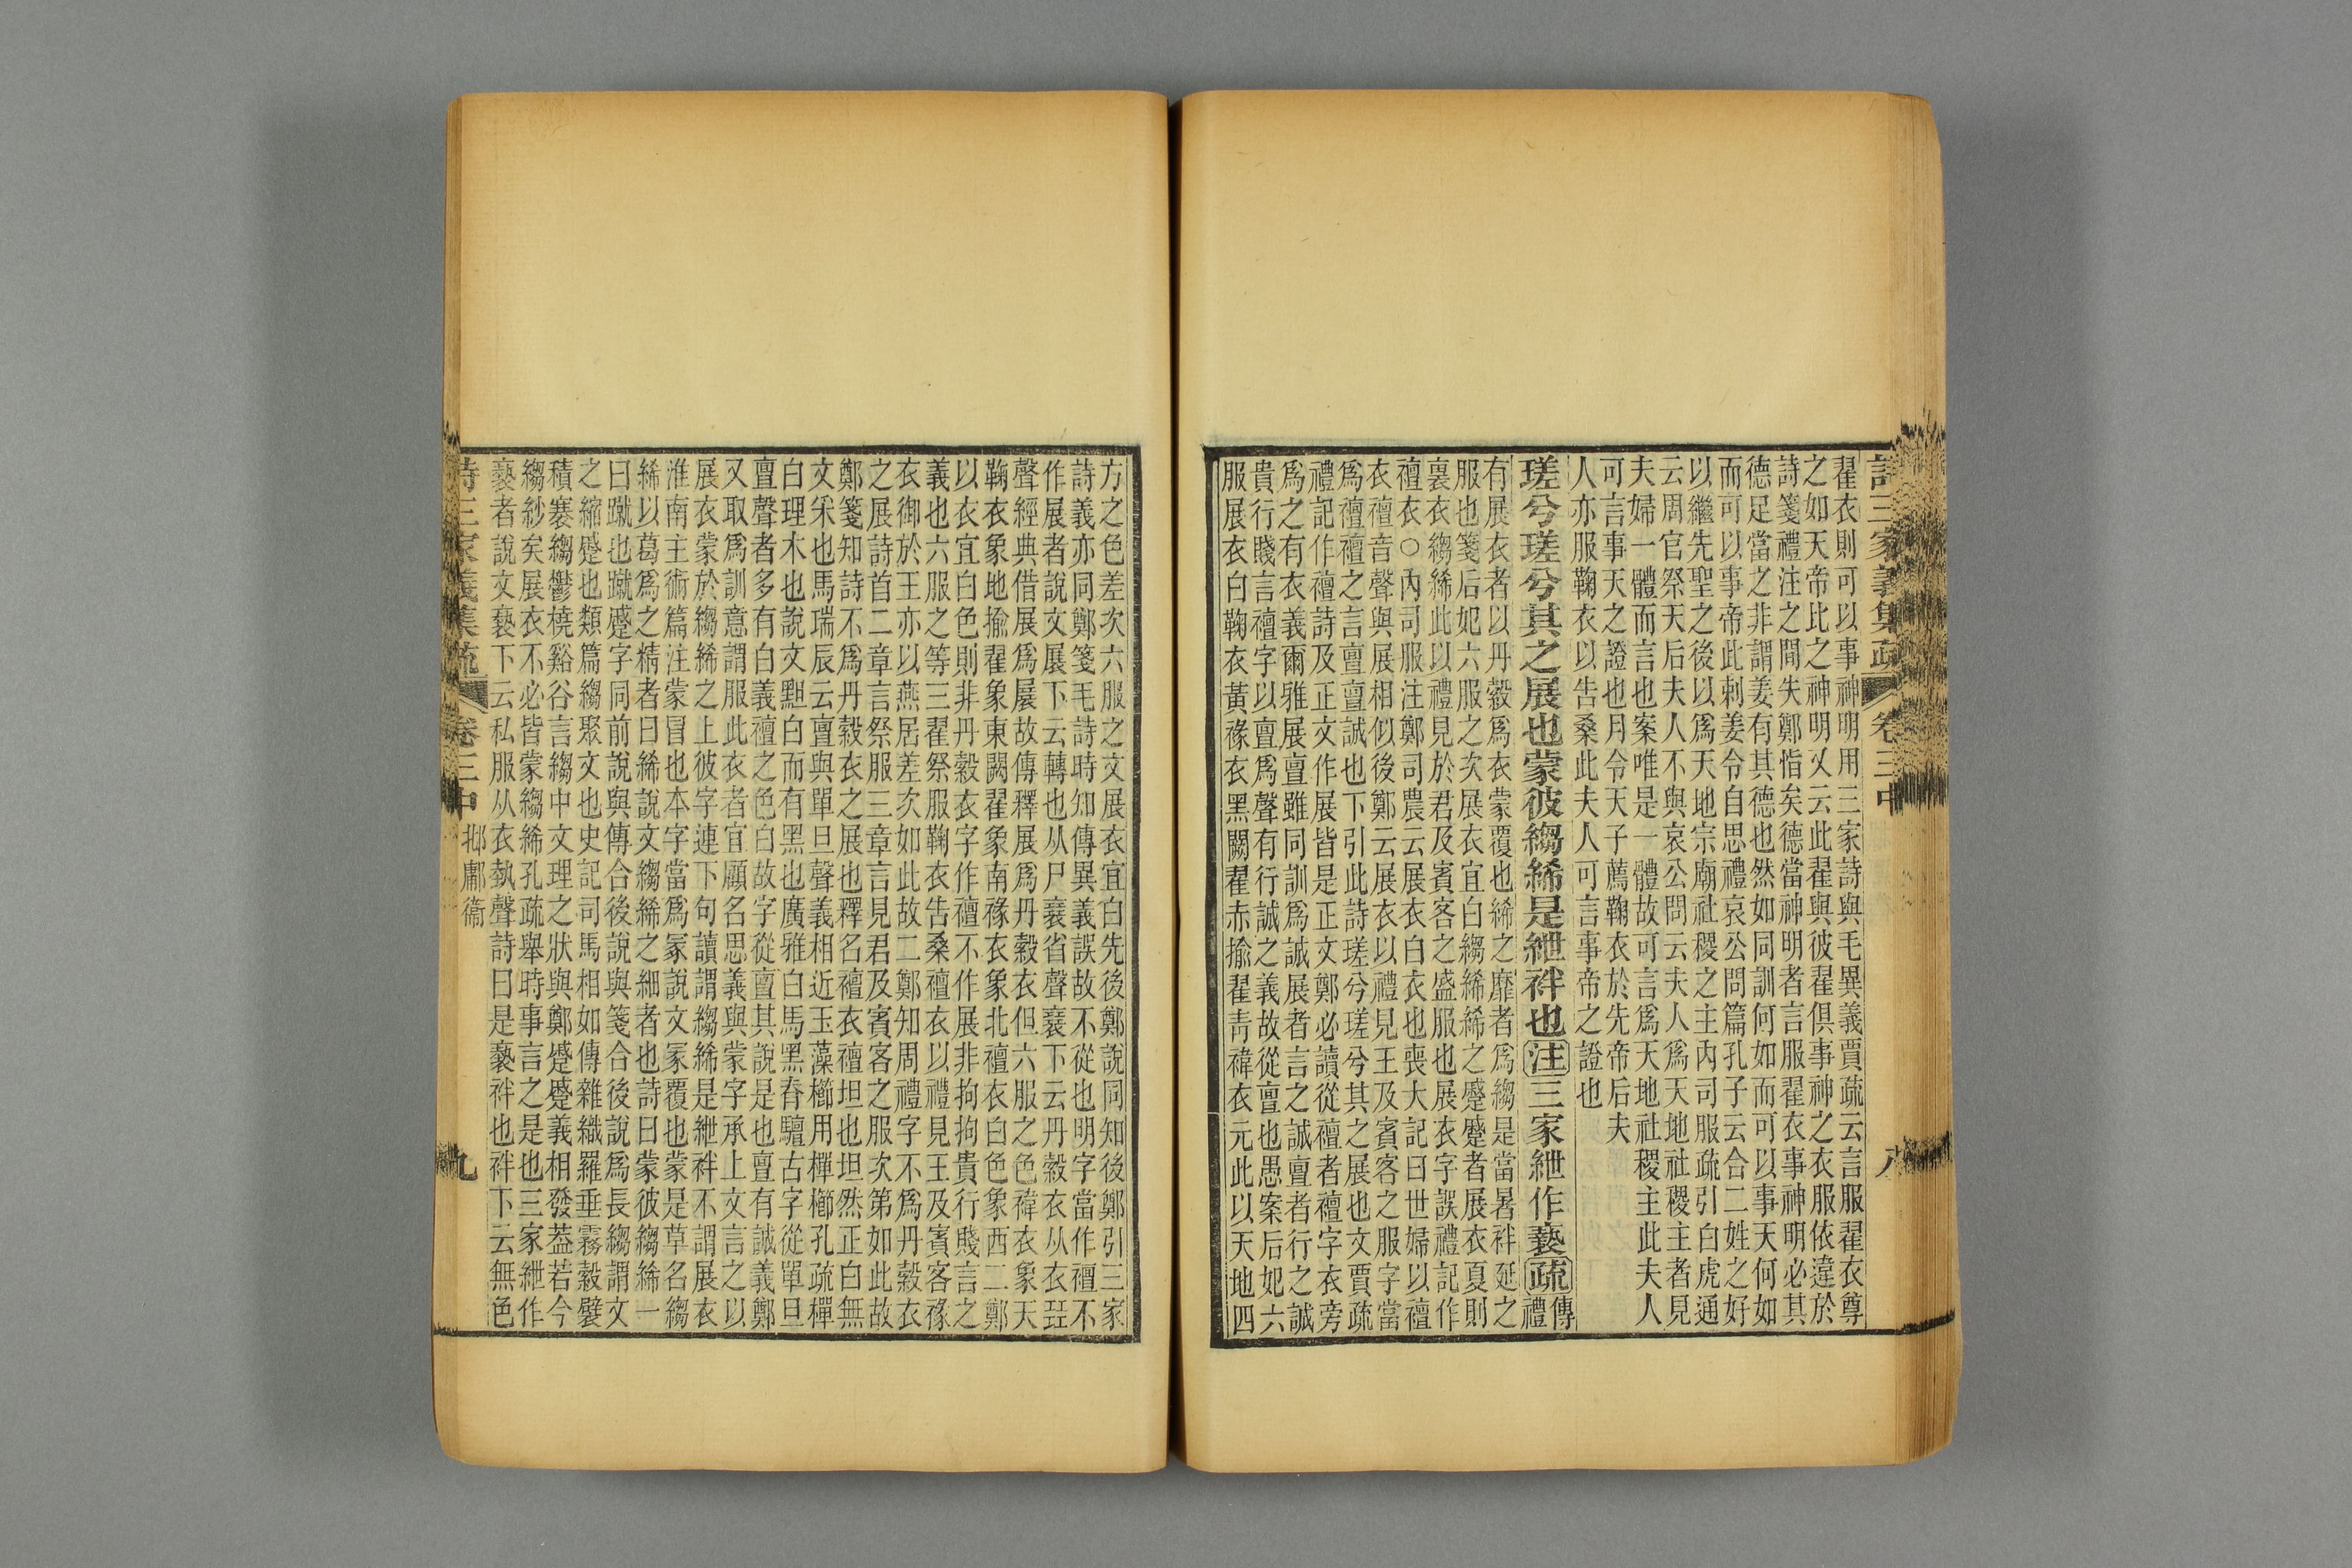 詩三家義集疏 卷三中 八
翟衣則可以事神明用三家詩與毛異義賈疏云言服翟衣尊
之如天帝比之神明又云此翟與彼翟俱事神之衣服依違於
詩箋禮注之間失鄭恉矣德當神明者言服翟衣事神明必其
德足當之非謂姜有其德也然如同訓何如而可以事天何如
而可以事帝此刺姜令自思禮哀公問篇孔子云合二姓之好
以繼先聖之後以爲天地宗廟社稷之主內司服疏引白虎通
云周官祭天后夫人不與哀公問云夫人爲天地社稷主者見
夫婦一體而言也案唯是一體故可言爲天地社稷主此夫人
可言事天之證也月令天子薦鞠衣於先帝后夫
人亦服鞠衣以告桑此夫人可言事帝之證也
瑳兮瑳兮其之展也蒙彼縐絺是紲袢也注三家紲作褻疏傳禮
有展衣者以丹縠爲衣蒙覆也絺之靡者爲縐是當暑袢延之
服也箋后妃六服之次展衣宜白縐絺絺之蹙蹙者展衣夏則
裏衣縐絺此以禮見於君及賓客之盛服也展衣字誤禮記作
襢衣○內司服注鄭司農云展衣白衣也喪大記曰世婦以襢
衣襢音聲與展相似後鄭云展衣以禮見王及賓客之服字當
爲襢襢之言亶亶誠也下引此詩瑳兮瑳兮其之展也文賈疏
禮記作襢詩及正文作展皆是正文鄭必讀從襢者襢字衣旁
爲之有衣義爾雅展亶雖同訓爲誠展者言之誠亶者行之誠
貴行賤言襢字以亶爲聲有行誠之義故從亶也愚案后妃六
服展衣白鞠衣黃褖衣黑闕翟赤揄翟青褘衣元此以天地四
方之色差次六服之文展衣宜白先後鄭說同知後鄭引三家
詩義亦同鄭箋毛詩時知傳異義誤故不從也明字當作襢不
作展者說文展下云轉也从尸㠭省聲㠭下云丹縠衣从衣㠭
聲經典借展爲㠭故傳釋展爲丹縠衣但六服之色褘衣象天
鞠衣象地揄翟象東闕翟象南褖衣象北襢衣白色象西二鄭
以衣宜白色則非丹縠衣字作襢不作展非拘拘貴行賤言之
義也六服之等三翟祭服鞠衣告桑襢衣以禮見王及賓客褖
衣御於王亦以燕居差次如此故二鄭知周禮字不爲丹縠衣
之展詩首二章言祭服三章言見君及賓客之服次第如此故
鄭箋知詩不爲丹縠衣之展也釋名襢衣襢坦也坦然正白無
文采也馬瑞辰云亶與單旦聲義相近玉藻櫛用樿櫛孔疏樿
白理木也說文䵣白而有黑也廣雅白馬黑脊驙古字從單旦
亶聲者多有白義襢之色白故字從亶其說是也亶有誠義鄭
又取爲訓意謂服此衣者宜顧名思義與蒙字承上文言之以
展衣蒙於縐絺之上彼字連下句讀謂縐絺是紲袢不謂展衣
淮南主術篇注蒙冒也本字當爲冡說文冡覆也蒙是草名縐
絺以葛爲之精者曰絺說文縐絺之細者也詩曰蒙彼縐絺一
曰蹴也蹴蹙字同前說與傳合後說與箋合後說爲長縐謂文
之縮蹙也類篇縐聚文也史記司馬相如傳雜纖羅垂霧縠襞
積褰縐鬱橈谿谷言縐中文理之狀與鄭蹙蹙義相發葢若今
縐紗矣展衣不必皆蒙縐絺孔疏舉時事言之是也三家紲作
褻者說文褻下云私服从衣埶聲詩曰是褻袢也袢下云無色
詩三家義集疏 卷三中 邶鄘衞 九